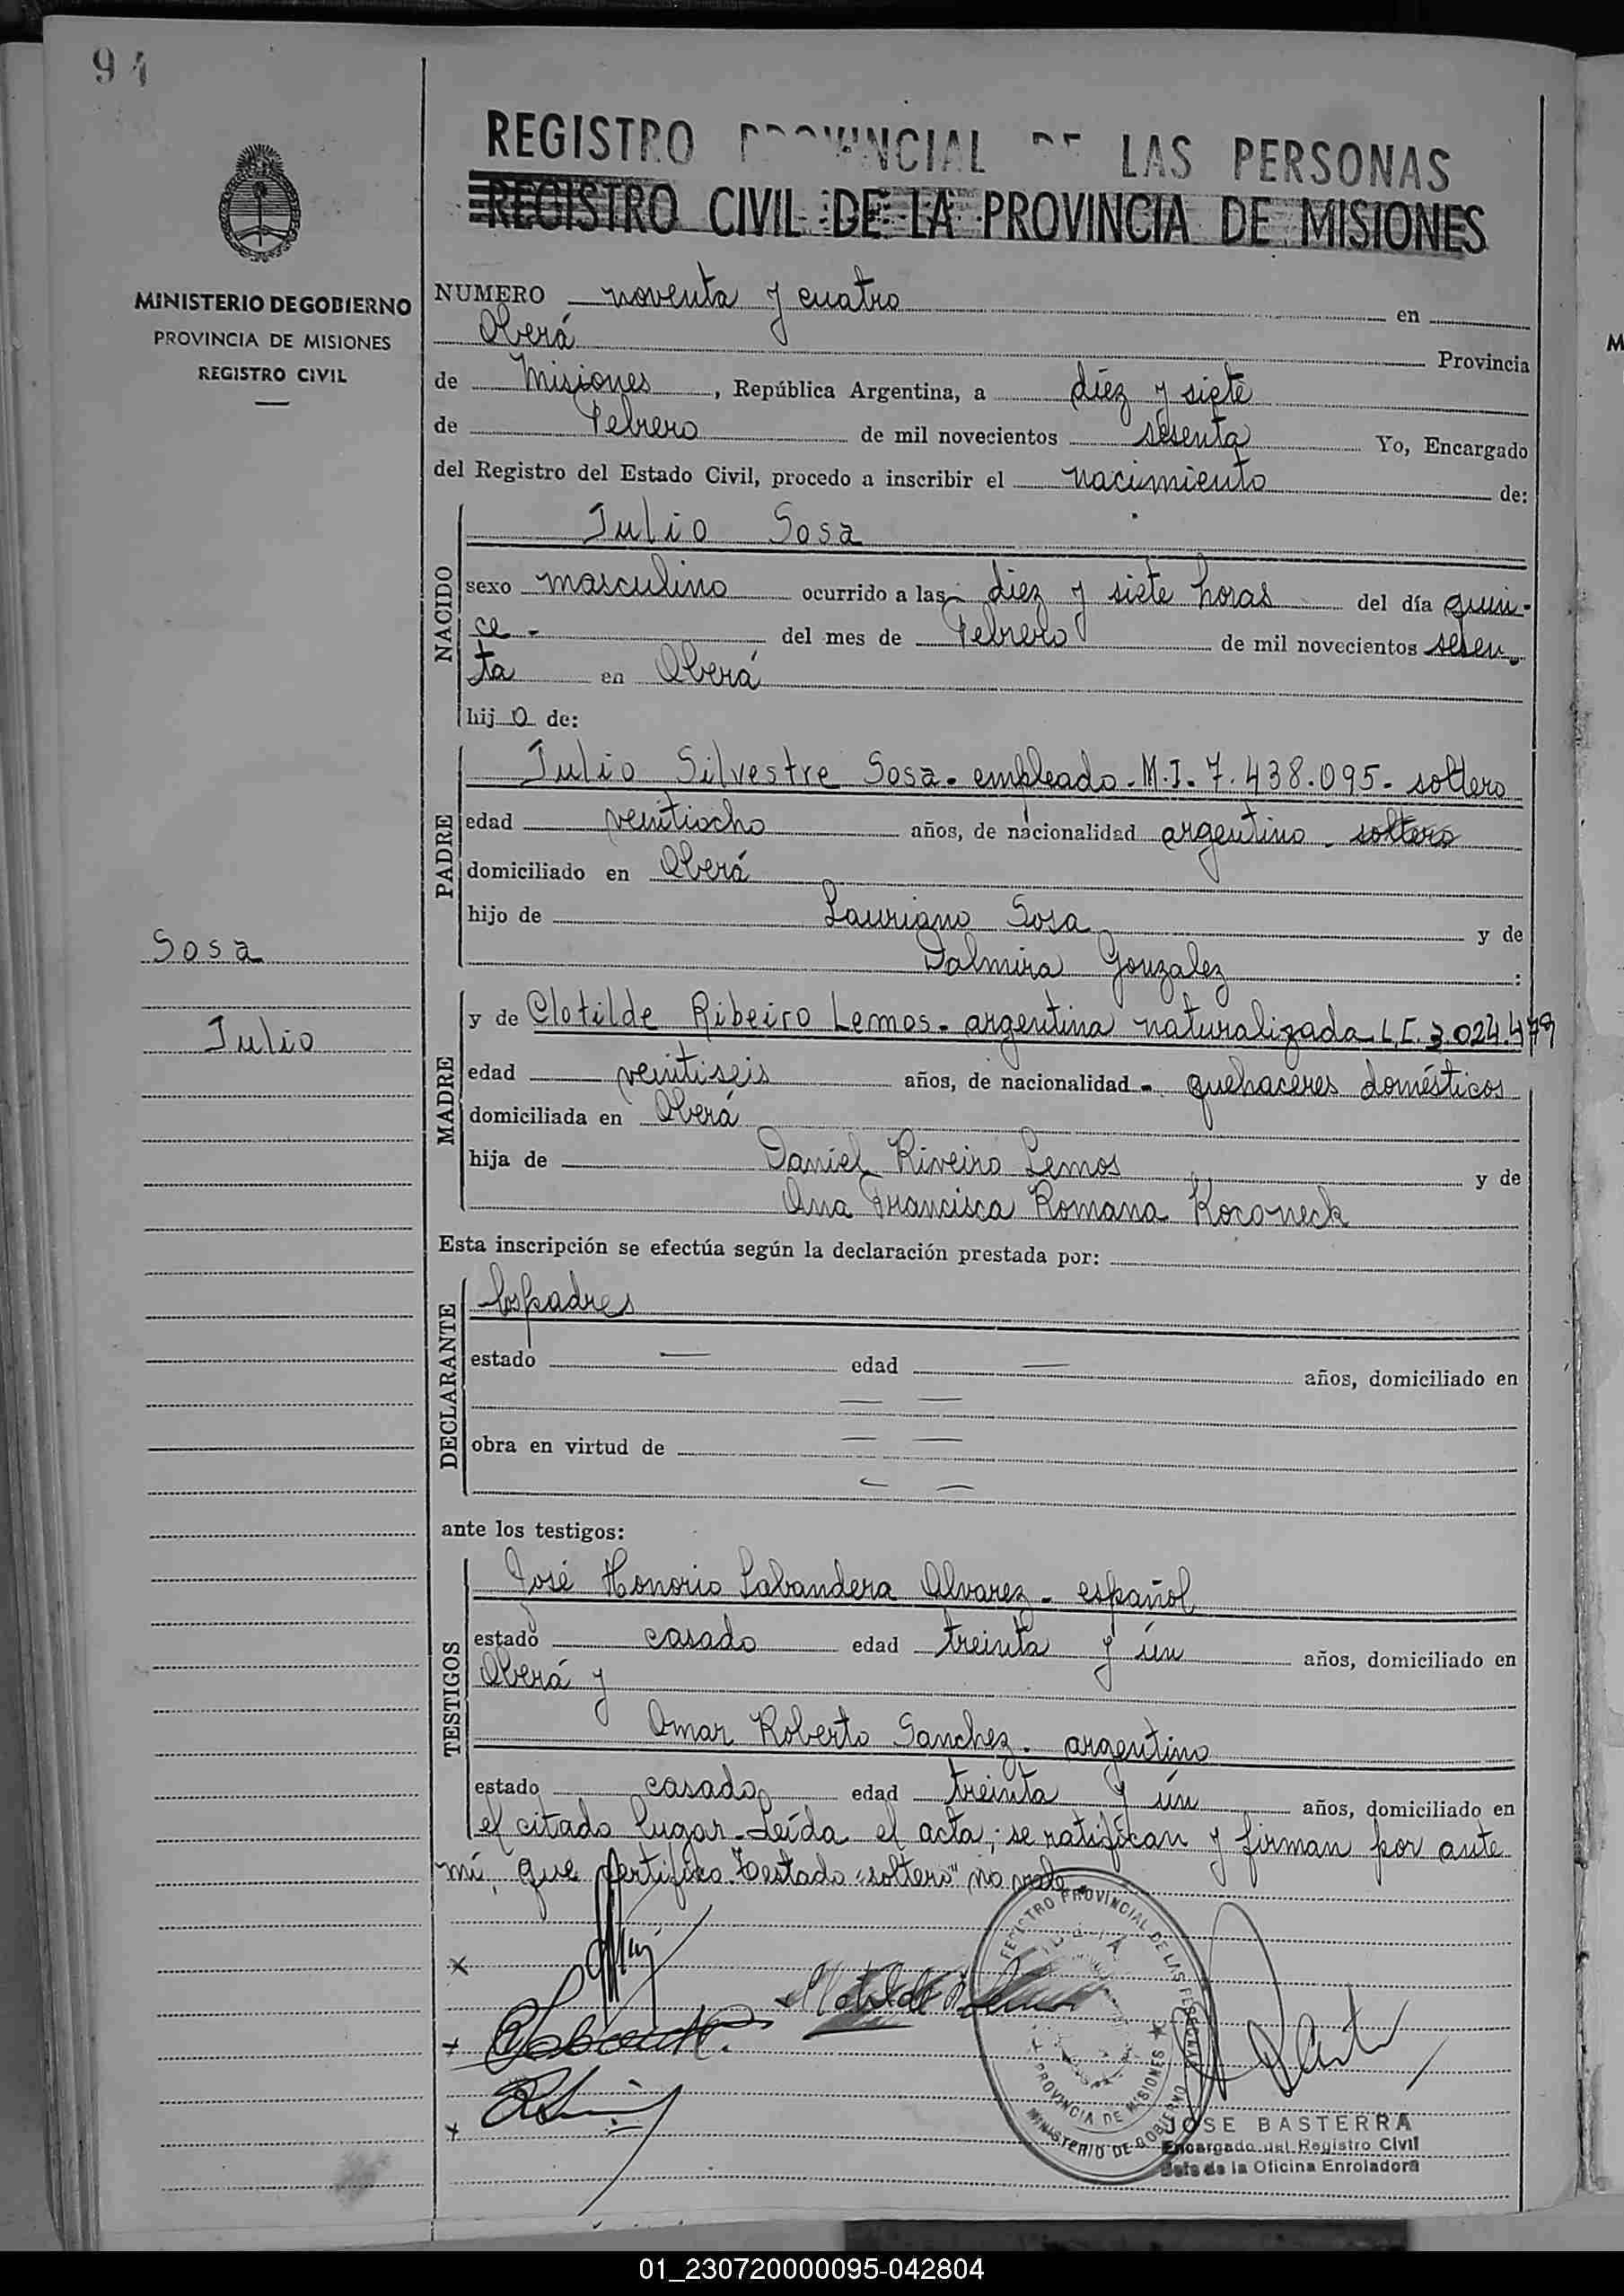 94
REGISTRO PROVINCIAL DE LAS PERSONAS
REGISTRO CIVIL DE LA PROVINCIA DE MISIONES
MINISTERIO DE GOBIERNO
PROVINCIA DE MISIONES
REGISTRO CIVIL
NUMERO noventa y cuatro en
Oberá Provincia
de Misiones, República Argentina, a diez y siete
de Febrero de mil novecientos sesenta Yo, Encargado
del Registro del Estado Civil, procedo a inscribir el nacimiento de:
NACIDO
Julio Sosa
sexo masculino ocurrido a las diez y siete horas del día quin-
ce - del mes de Febrero de mil novecientos sesen-
ta en Oberá
hijo de:
PADRE
Julio Silvestre Sosa - empleado - M.I. 7.438.095 - soltero
edad veintiocho años, de nacionalidad argentino - soltero
domiciliado en Oberá
hijo de Lauriano Sosa y de
Palmira Gonzalez :
Sosa
Julio
MADRE
y de Clotilde Ribeiro Lemos - argentina naturalizada L.C. 3.024.479
edad veintiseis años, de nacionalidad - quehaceres domésticos
domiciliada en Oberá
hija de Daniel Riveiro Lemos y de
Ana Francisca Romana Koconeck
Esta inscripción se efectúa según la declaración prestada por:
DECLARANTE
los padres
estado — edad — años, domiciliado en
— —
obra en virtud de — —
— —
ante los testigos:
TESTIGOS
José Honorio Labandera Alvarez - español
estado casado edad treinta y ún años, domiciliado en
Oberá y
Omar Roberto Sanchez - argentino
estado casado edad treinta y ún años, domiciliado en
el citado lugar - Leída el acta, se ratifican y firman por ante
mí, que certifico. Testado "soltero" no vale -
REGISTRO PROVINCIAL DE LAS PERSONAS
PROVINCIA DE MISIONES
MINISTERIO DE GOBIERNO
JOSE BASTERRA
Encargado del Registro Civil
Jefe de la Oficina Enroladora
01_230720000095-042804